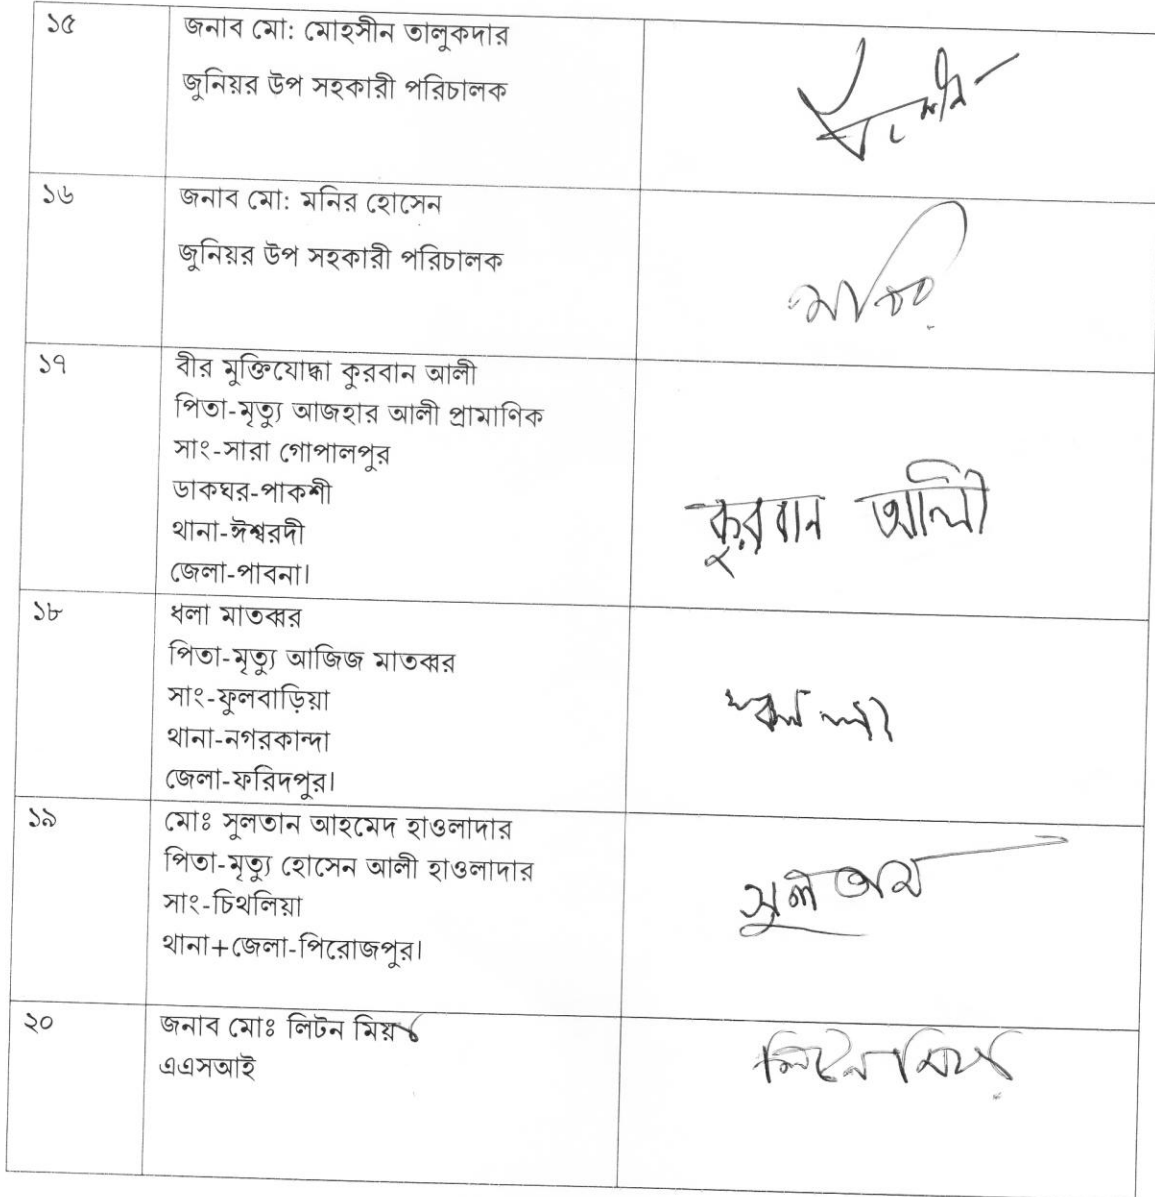 ১৫
জনাব মো: মোহসীন তালুকদার
জুনিয়র উপ সহকারী পরিচালক
১৬
জনাব মো: মনির হোসেন
জুনিয়র উপ সহকারী পরিচালক
মনির
১৭
বীর মুক্তিযোদ্ধা কুরবান আলী
পিতা-মৃত্যু আজহার আলী প্রামাণিক
সাং-সারা গোপালপুর
ডাকঘর-পাকশী
থানা-ঈশ্বরদী
জেলা-পাবনা।
কুরবান আলী
১৮
ধলা মাতব্বর
পিতা-মৃত্যু আজিজ মাতব্বর
সাং-ফুলবাড়িয়া
থানা-নগরকান্দা
জেলা-ফরিদপুর।
১৯
মোঃ সুলতান আহমেদ হাওলাদার
পিতা-মৃত্যু হোসেন আলী হাওলাদার
সাং-চিথলিয়া
থানা+জেলা-পিরোজপুর।
সুলতান
২০
জনাব মোঃ লিটন মিয়া
এএসআই
লিটন মিয়া